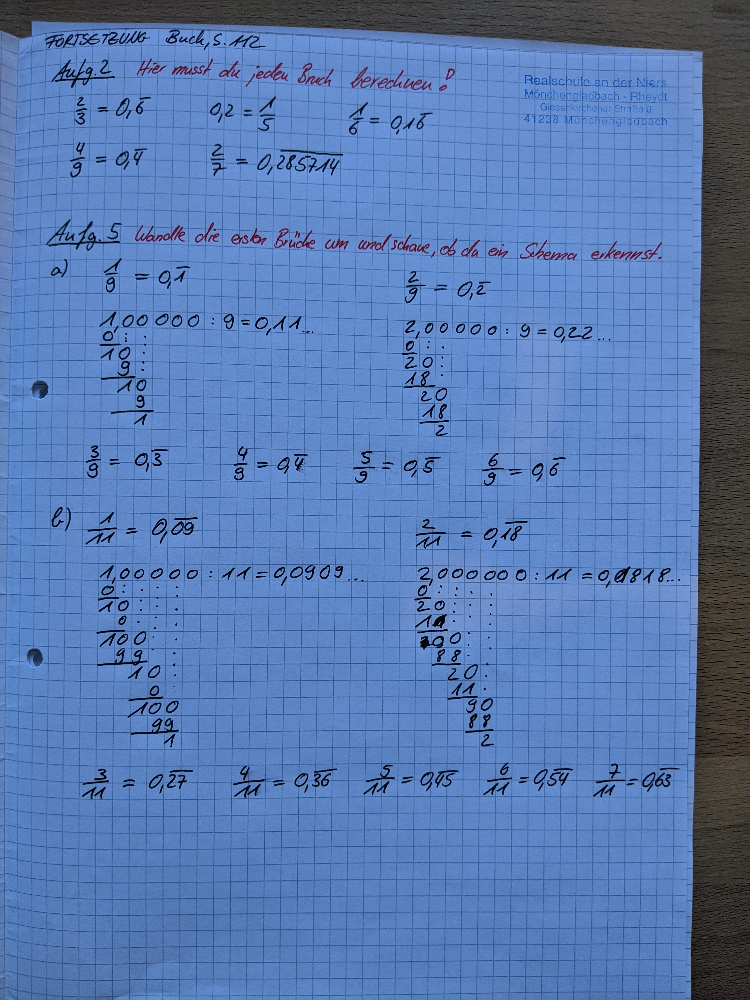 FORTSETZUNG Buch, S. 112
Aufg. 2 Hier musst du jeden Bruch berechnen!
Realschule an der Niers
Mönchengladbach - Rheydt
Giesenkirchener Straße
41238 Mönchengladbach
2/3 = 0,6̅ 0,2 = 1/5 1/6 = 0,16̅
4/9 = 0,4̅ 2/7 = 0,2̅8̅5̅7̅1̅4̅
Aufg. 5 Wandle die ersten Brüche um und schaue, ob du ein Schema erkennst.
a) 1/9 = 0,1̅ 2/9 = 0,2̅
1,00000 : 9 = 0,11... 2,00000 : 9 = 0,22...
0 0
10 20
9 18
10 20
9 18
1 2
3/9 = 0,3̅ 4/9 = 0,4̅ 5/9 = 0,5̅ 6/9 = 0,6̅
b) 1/11 = 0,0̅9̅ 2/11 = 0,1̅8̅
1,00000 : 11 = 0,0909... 2,000000 : 11 = 0,1818...
0 0
10 20
0 11
100 90
99 88
10 20
0 11
100 90
99 88
1 2
3/11 = 0,2̅7̅ 4/11 = 0,3̅6̅ 5/11 = 0,4̅5̅ 6/11 = 0,5̅4̅ 7/11 = 0,6̅3̅